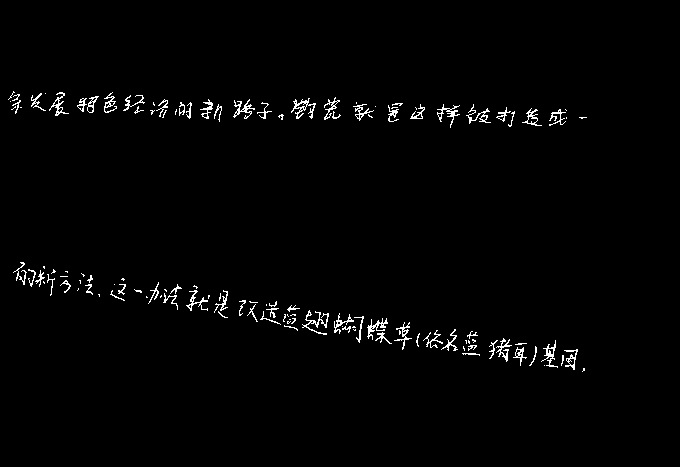 条发展特色经济的新路子。钧瓷就是这样被打造成一
的新方法,这一办法就是改造蓝翅蝴蝶草(俗名蓝猪耳)基因,